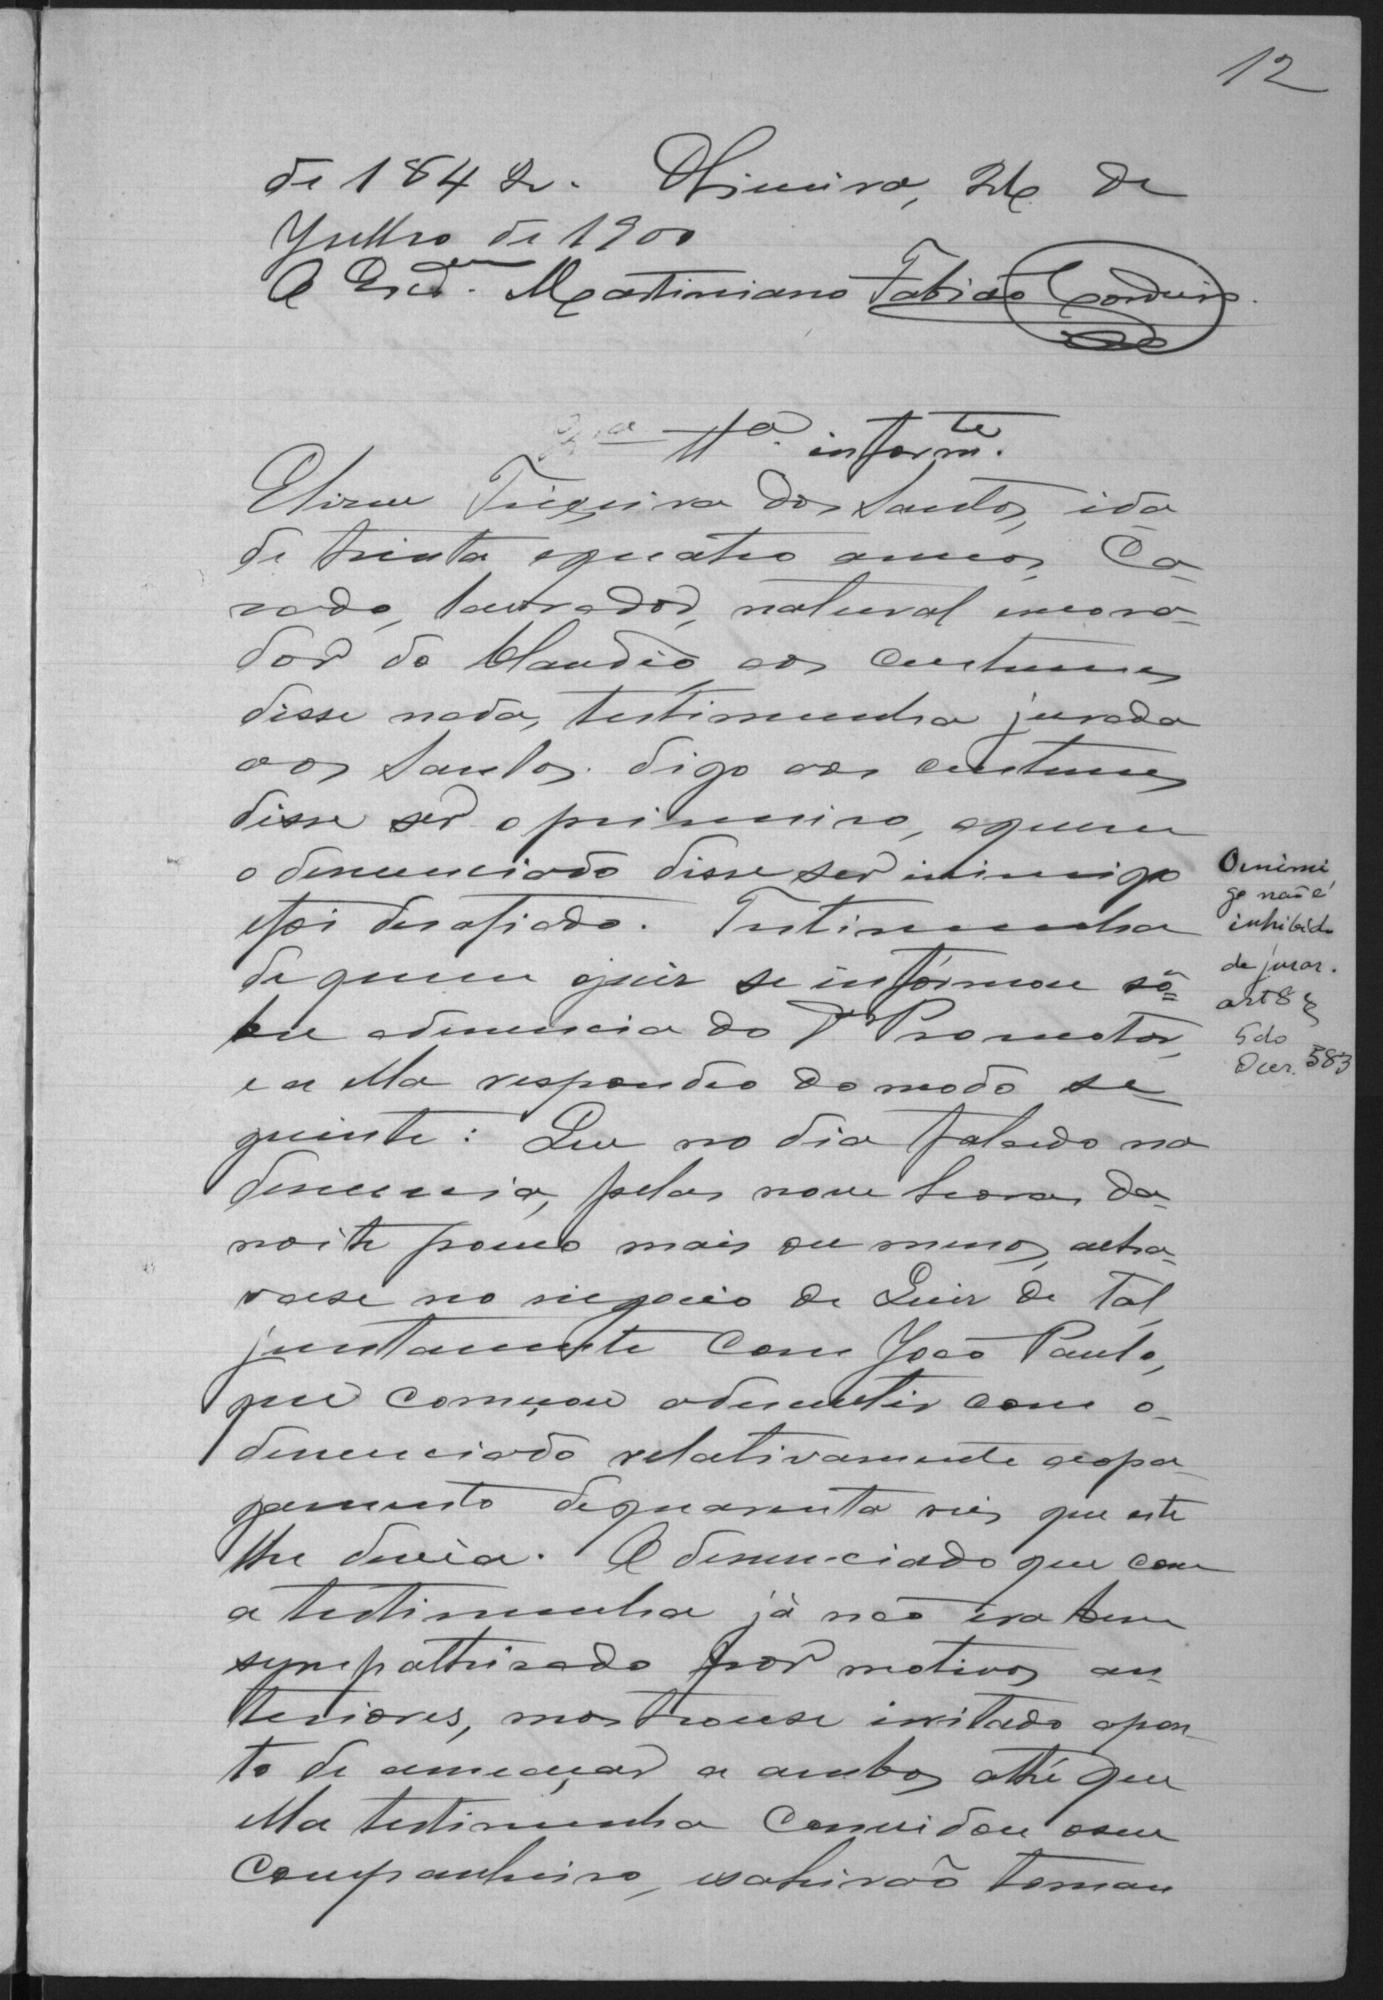 12
de 1842. Oliveira, 26 de
Julho de 1900
O Escr.am Martiniano Fabião Cordeiro.
Ta. inform.te
Teixeira dos Santos, ida
de trinta equatro annos, Ca-
zado, lavrador, natural emora-
dor do Claudio, aos custumes
disse nada, testimunha jurada
aos Santos digo aos custumes
disse ser o primeiro, aquem
o denunciado disse ser inimigo
efoi desafiado. Testimunha
de quem o juiz se informou so=
bre adenuncia do Dr. Promotor,
e a ella respondeo do modo se
guinte: Que no dia falado na
denuncia, pelas nove horas da-
noite pouco mais ou menos, acha-
vase no negocio de Luiz de tal,
juntamente com João Paulo,
que começou adiscutir com o-
denunciado relativamente aopa-
gamento dequarenta reis que este
lhe devia. O denunciado que com
a testimunha já não era bem
sympathisado por motivos an-
teriores, mostrouse irritado apon-
to de ameaçar a ambos athé que
ella testimunha convidou oseu
companheiro, esahirão toman
O inimi
go não é
inhibido
de jurar.
art 8 §
5 do
Decr. 583